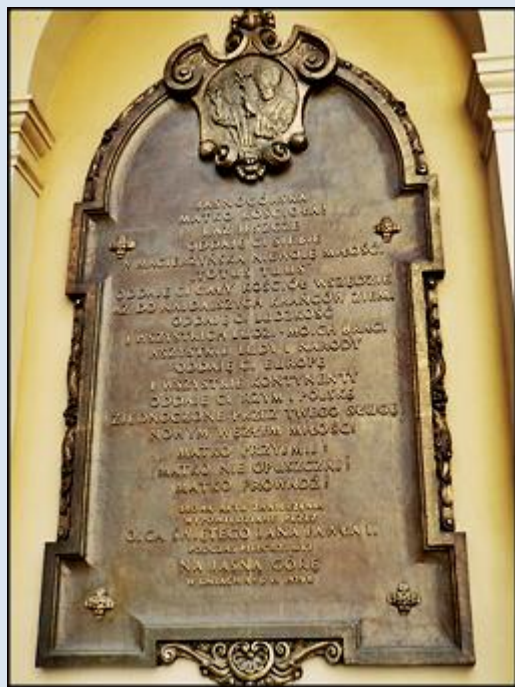 JASNOGÓRSKA
MATKO KOŚCIOŁA!
RAZ JESZCZE
ODDAJĘ CI SIEBIE
W MACIERZYŃSKĄ NIEWOLĘ MIŁOŚCI
TOTUS TUUS
ODDAJĘ CI CAŁY KOŚCIÓŁ WSZĘDZIE
AŻ DO NAJDALSZYCH KRAŃCÓW ZIEMI
ODDAJĘ CI LUDZKOŚĆ
I WSZYSTKICH LUDZI - MOICH BRACI
WSZYSTKIE LUDY I NARODY
ODDAJĘ CI EUROPĘ
I WSZYSTKIE KONTYNENTY
ODDAJĘ CI RZYM I POLSKĘ
ZJEDNOCZONE PRZEZ TWEGO SŁUGĘ
NOWYM WĘZŁEM MIŁOŚCI
MATKO PRZYJMIJ!
MATKO NIE OPUSZCZAJ!
MATKO PROWADŹ!
SŁOWA AKTU ZAWIERZENIA
WYPOWIEDZIANE PRZEZ
OJCA ŚWIĘTEGO JANA PAWŁA II
PODCZAS PIELGRZYMKI
NA JASNĄ GÓRĘ
W DNIACH